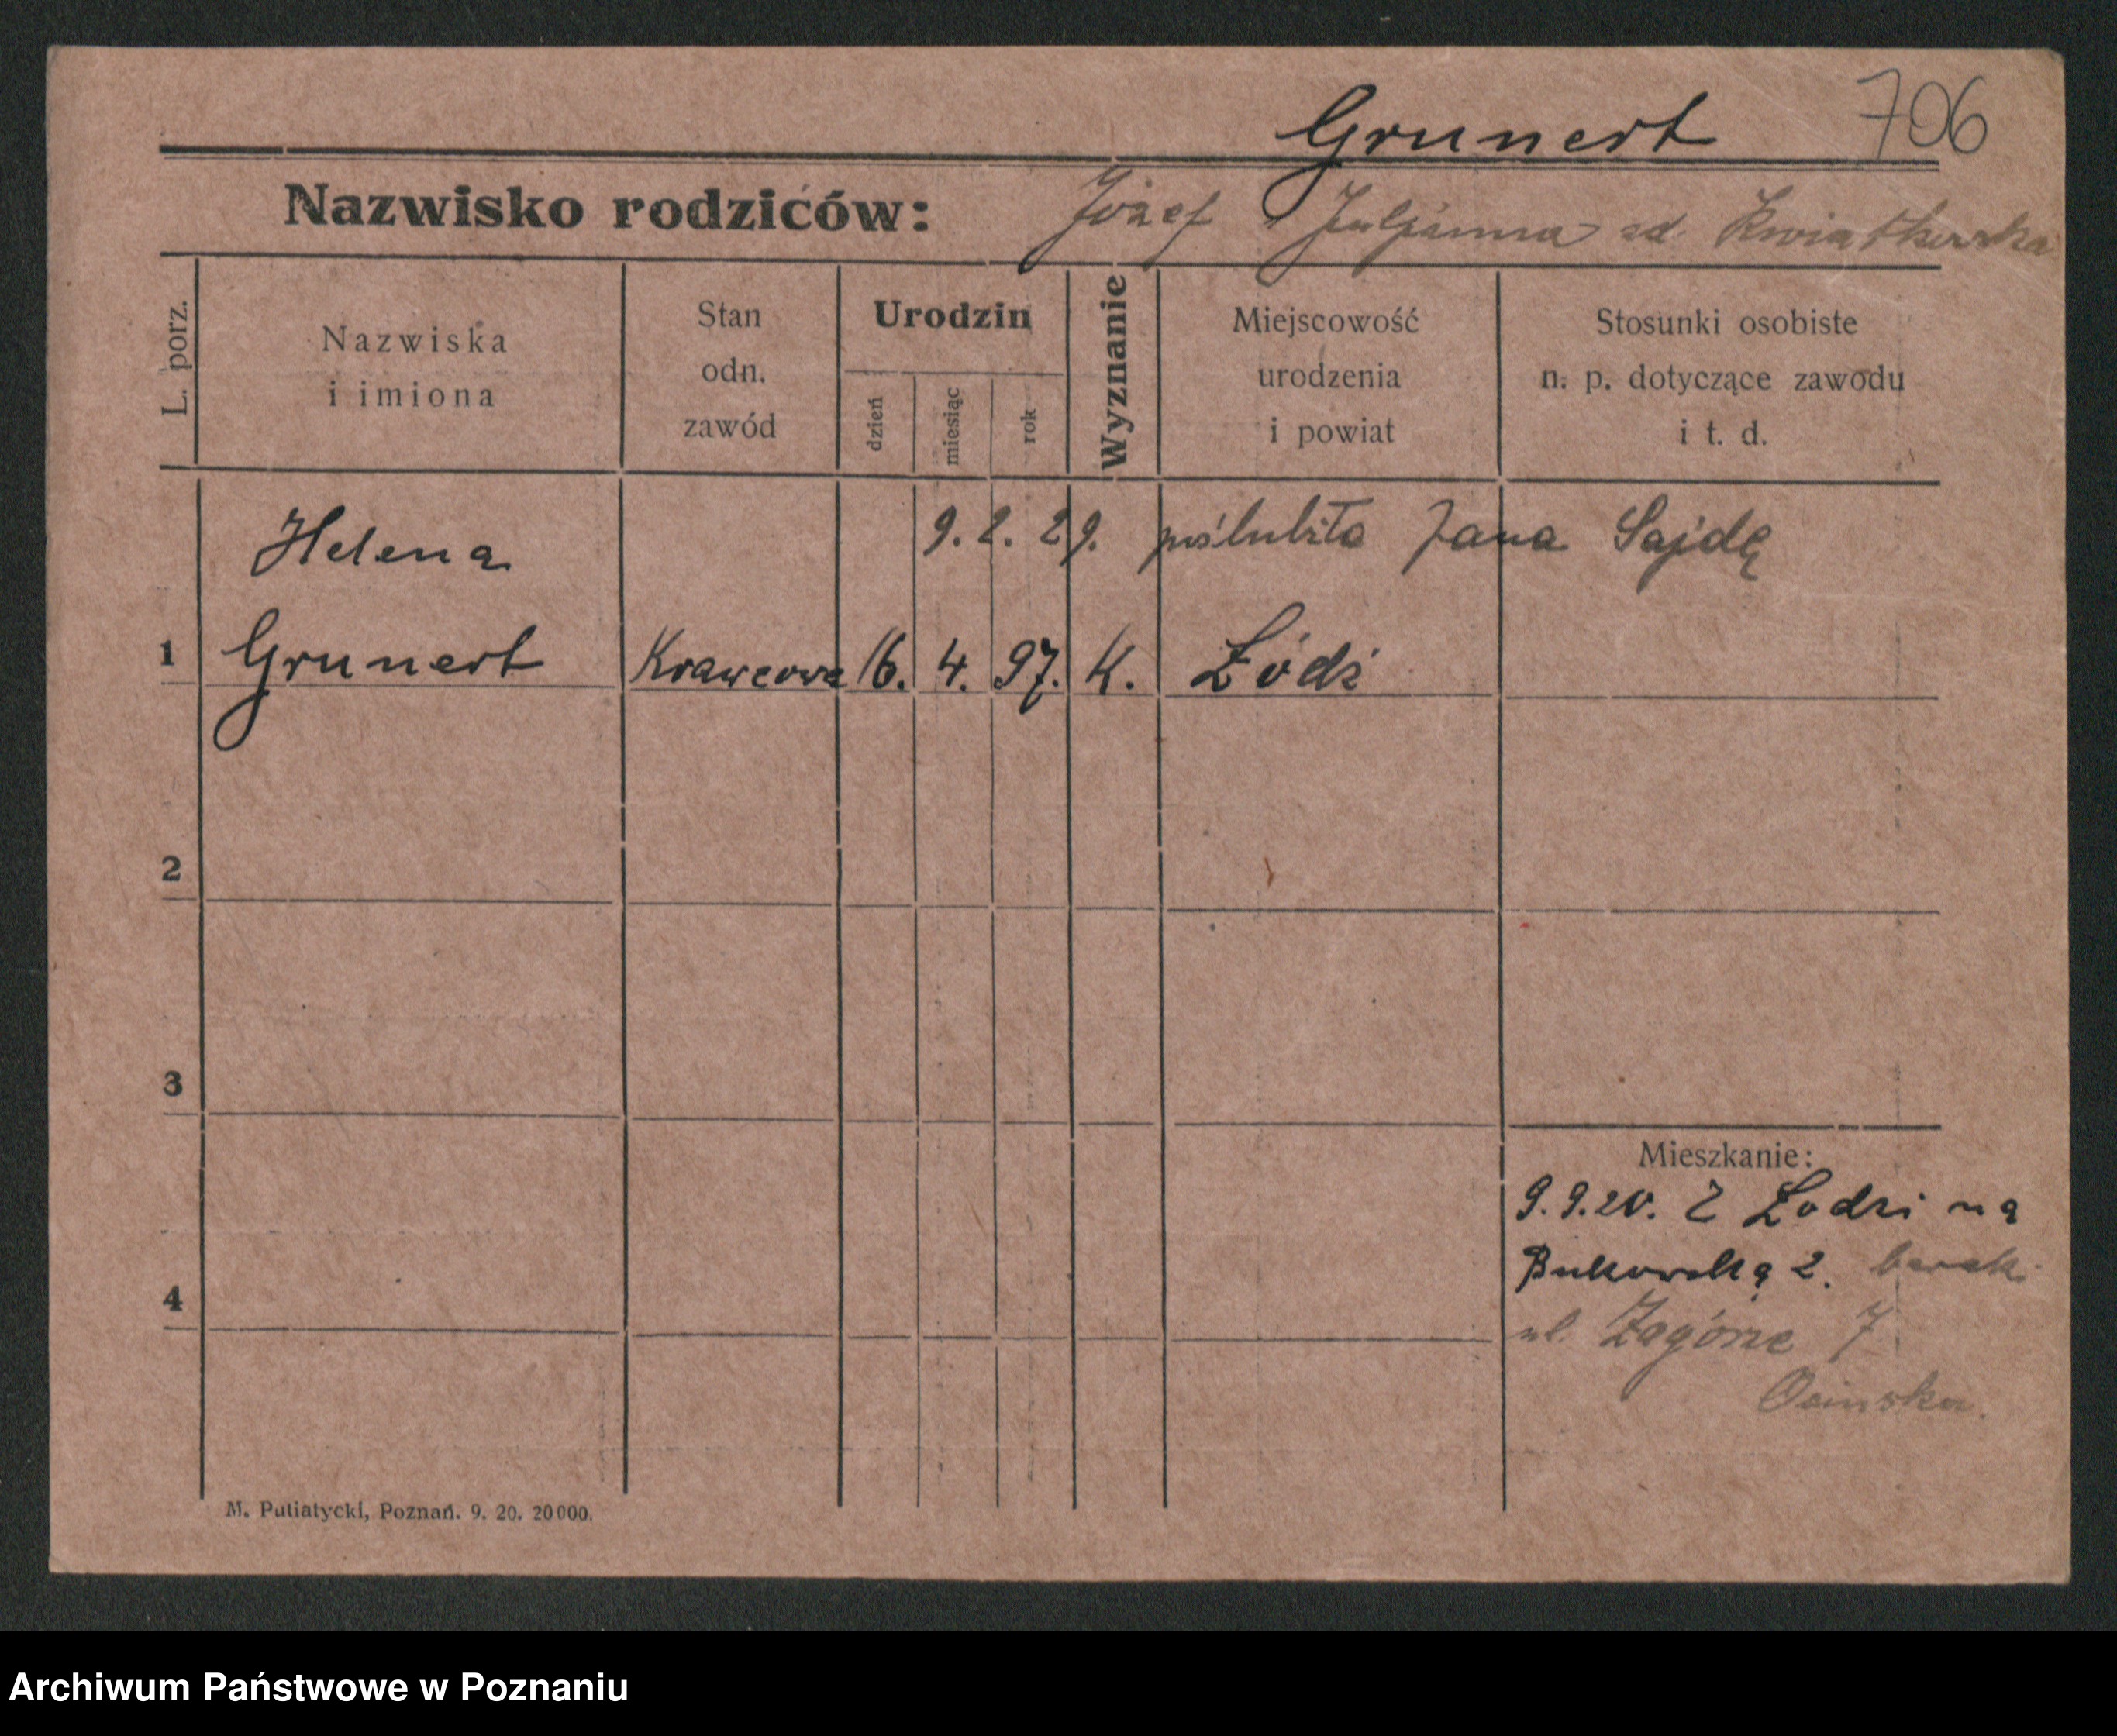 Grunert 706
Nazwisko rodziców: Józef Juljanna zd. Kwiatkowska
L. porz.
Nazwiska
i imiona
Stan
odn.
zawód
Urodzin
dzień
miesiąc
rok
Wyznanie
Miejscowość
urodzenia
i powiat
Stosunki osobiste
n. p. dotyczące zawodu
i t. d.
Helena 9. 2. 29. poślubiła Jana Sajdę
1 Grunert Krawcowa 16. 4. 97. K. Łódź
2
3
Mieszkanie:
9.9.20. Z Łodzi na
Bukowską 2. barak
4
ul. Zagórze 7
Osinska
M. Putiatycki, Poznań. 9. 20. 20000.
Archiwum Państwowe w Poznaniu